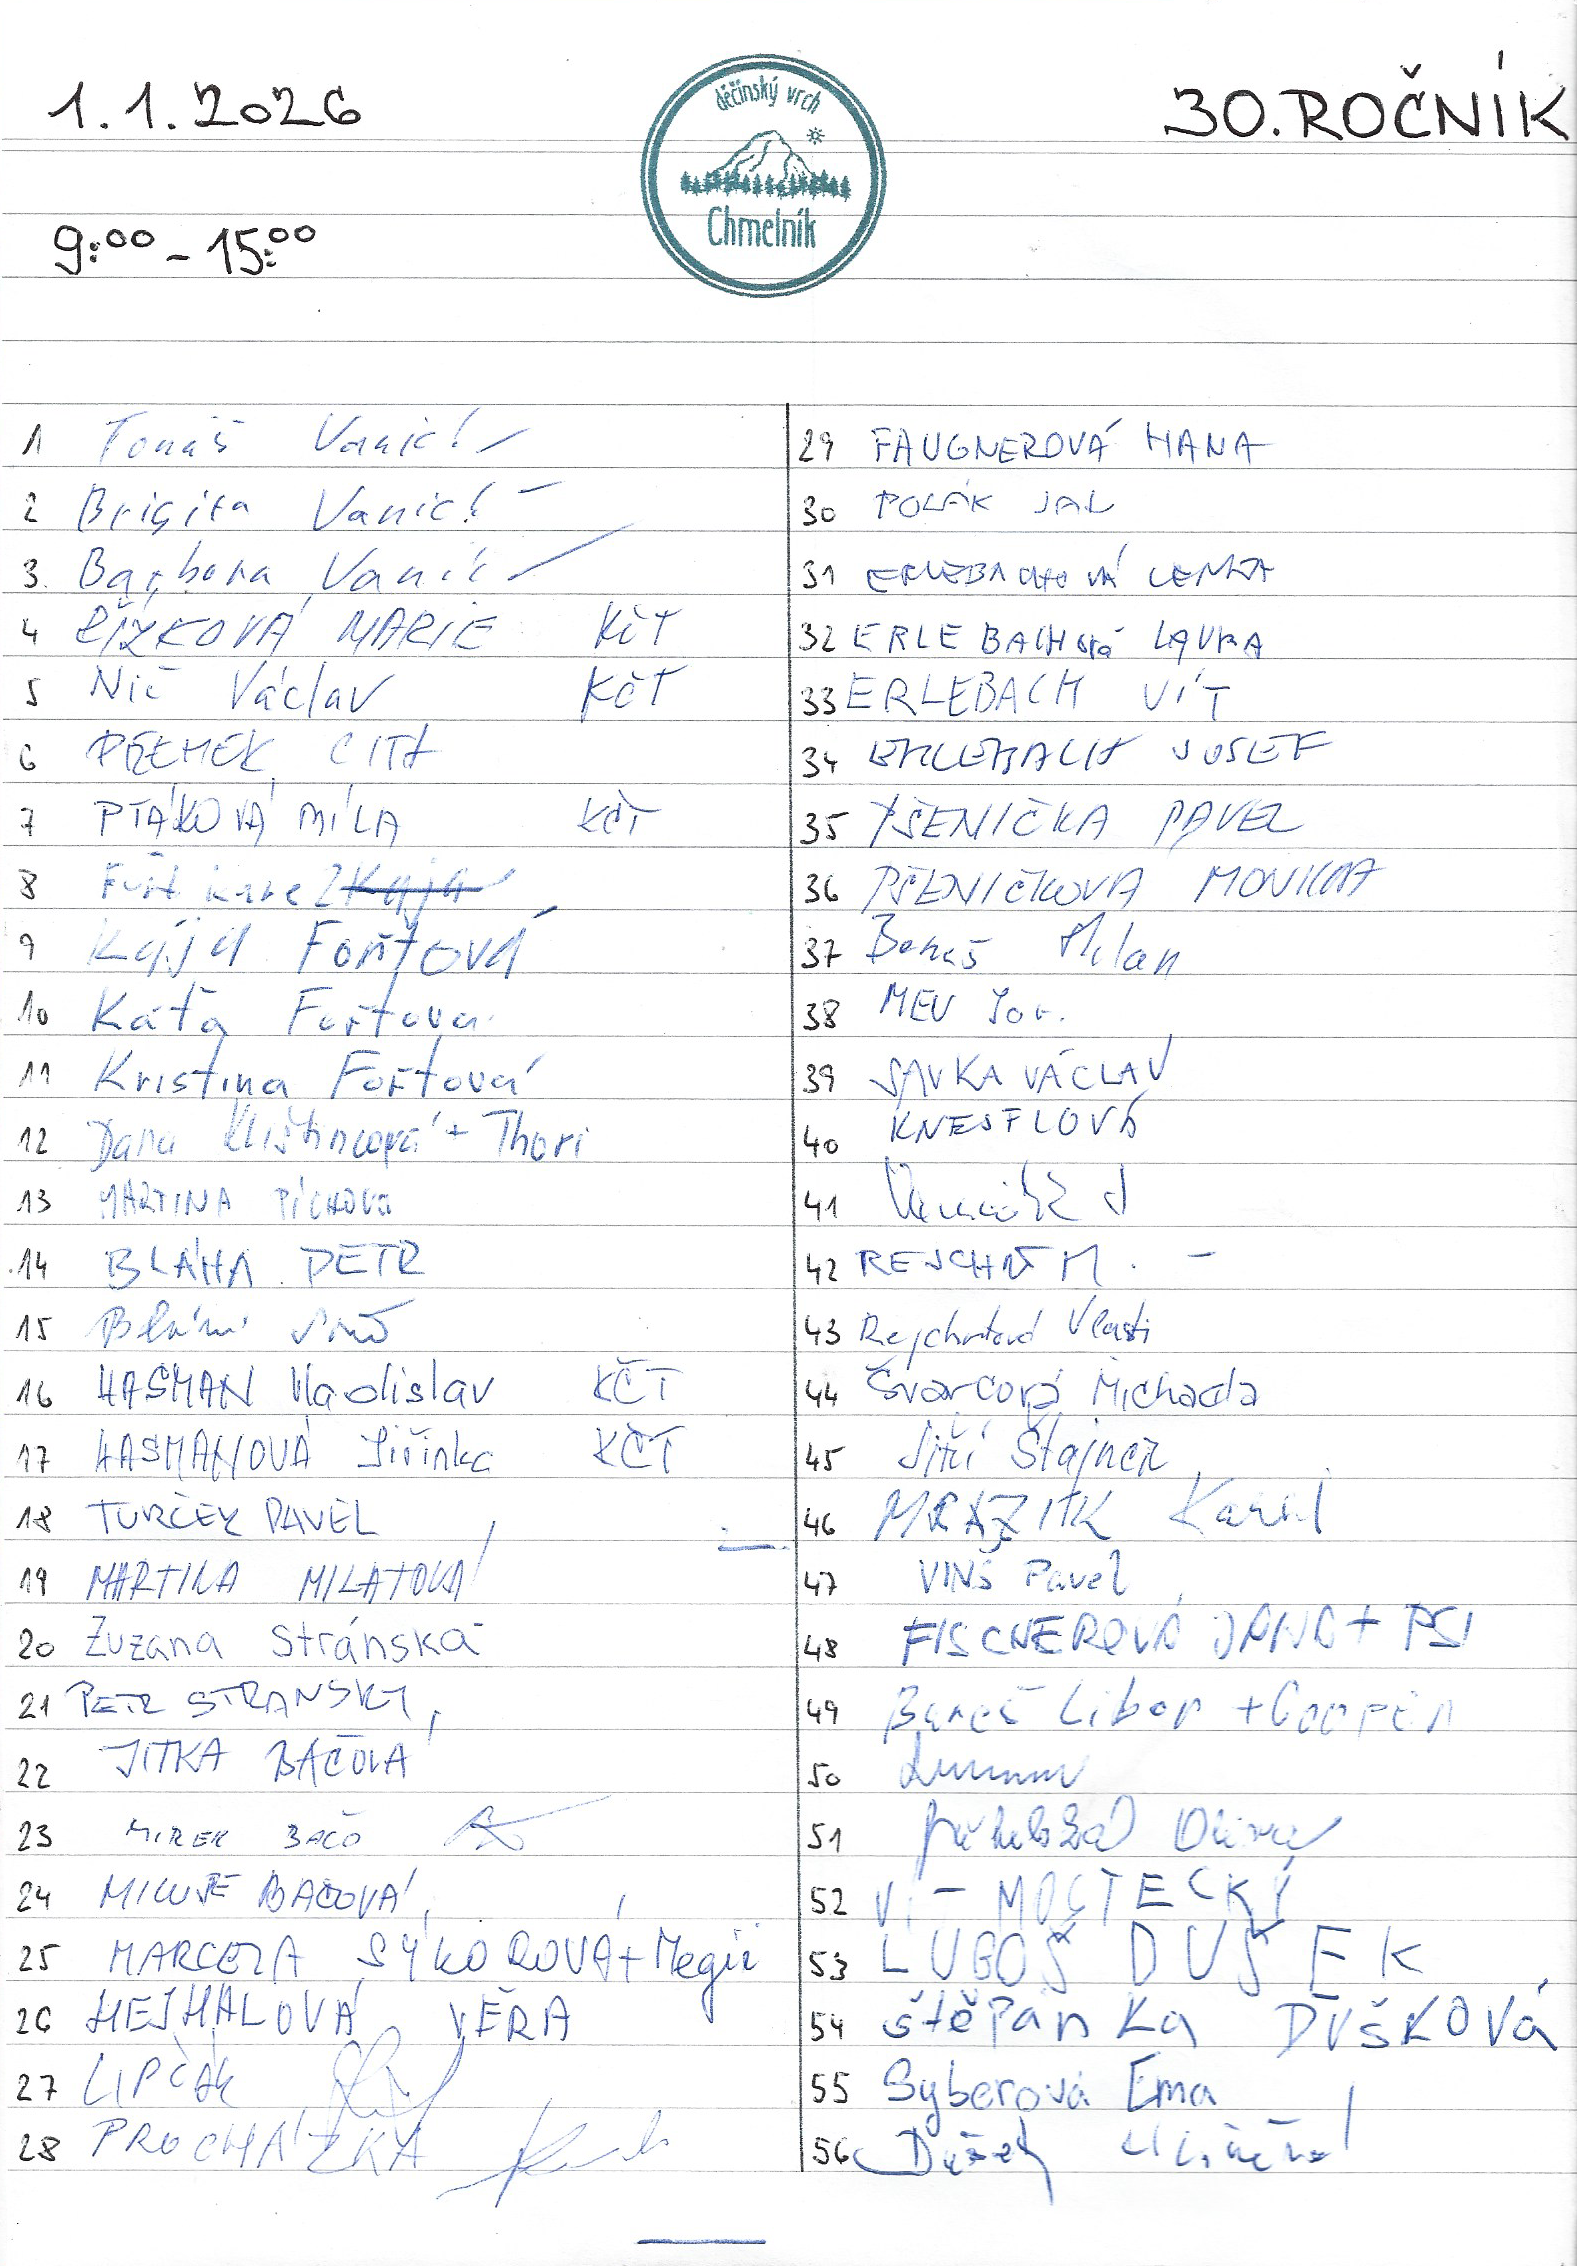 1.1.2026
děčínský vrch
Chmelník
30. ROČNÍK
9:00 - 15:00
1 Tomáš Vanic
2 Brigita Vanic
3. Barbora Vanic
4 ŘÍZKOVÁ MARIE KČT
5 Nič Václav KČT
6 PŘEMEK CITA
7 PTÁKOVÁ MÍLA KČT
8 Fořt
9 Kája Fořtová
10 Káťa Fořtova
11 Kristina Fořtová
12 Dana + Thori
13 MARTINA PÍCHOVÁ
14 BLÁHA PETR
15
16 HASMAN Vladislav KČT
17 HASMANOVÁ Jiřinka KČT
18 TURČEK PAVEL
19 MARTINA MILATOVÁ
20 Zuzana Stránská
21 PETR STRANSKY
22 JITKA BAČOVÁ
23 MIREK BAČO
24 BAČOVÁ
25 MARCELA SÝKOROVÁ + Megii
26 HEJHALOVÁ VĚRA
27 LIPČÁK
28 PROCHÁZKA
29 FAUGNEROVÁ HANA
30 POLÁK JAN
31 ERLEBACHOVÁ LENKA
32 ERLEBACHOVÁ LAURA
33 ERLEBACH VÍT
34 ERLEBACH JOSEF
35 PŠENIČKA PAVEL
36 PŠENIČKOVÁ MONIKA
37 Beneš Milan
38
39 SAVKA VÁCLAV
40 KNESFLOVÁ
41
42 REJCHRT M. -
43 Rejchrtová Vlasti
44 Švarcová Michaela
45 Jiří Štajner
46 MRÁZIK Karel
47 VINŠ Pavel
48 FISCHEROVÁ JANA + PSI
49 Bureš Libor + Cooper
50
51
52 MOCTECKÝ
53 LUBOŠ DUŠEK
54 štěpánka DUŠKOVÁ
55 Syberová Ema
56 Dušek